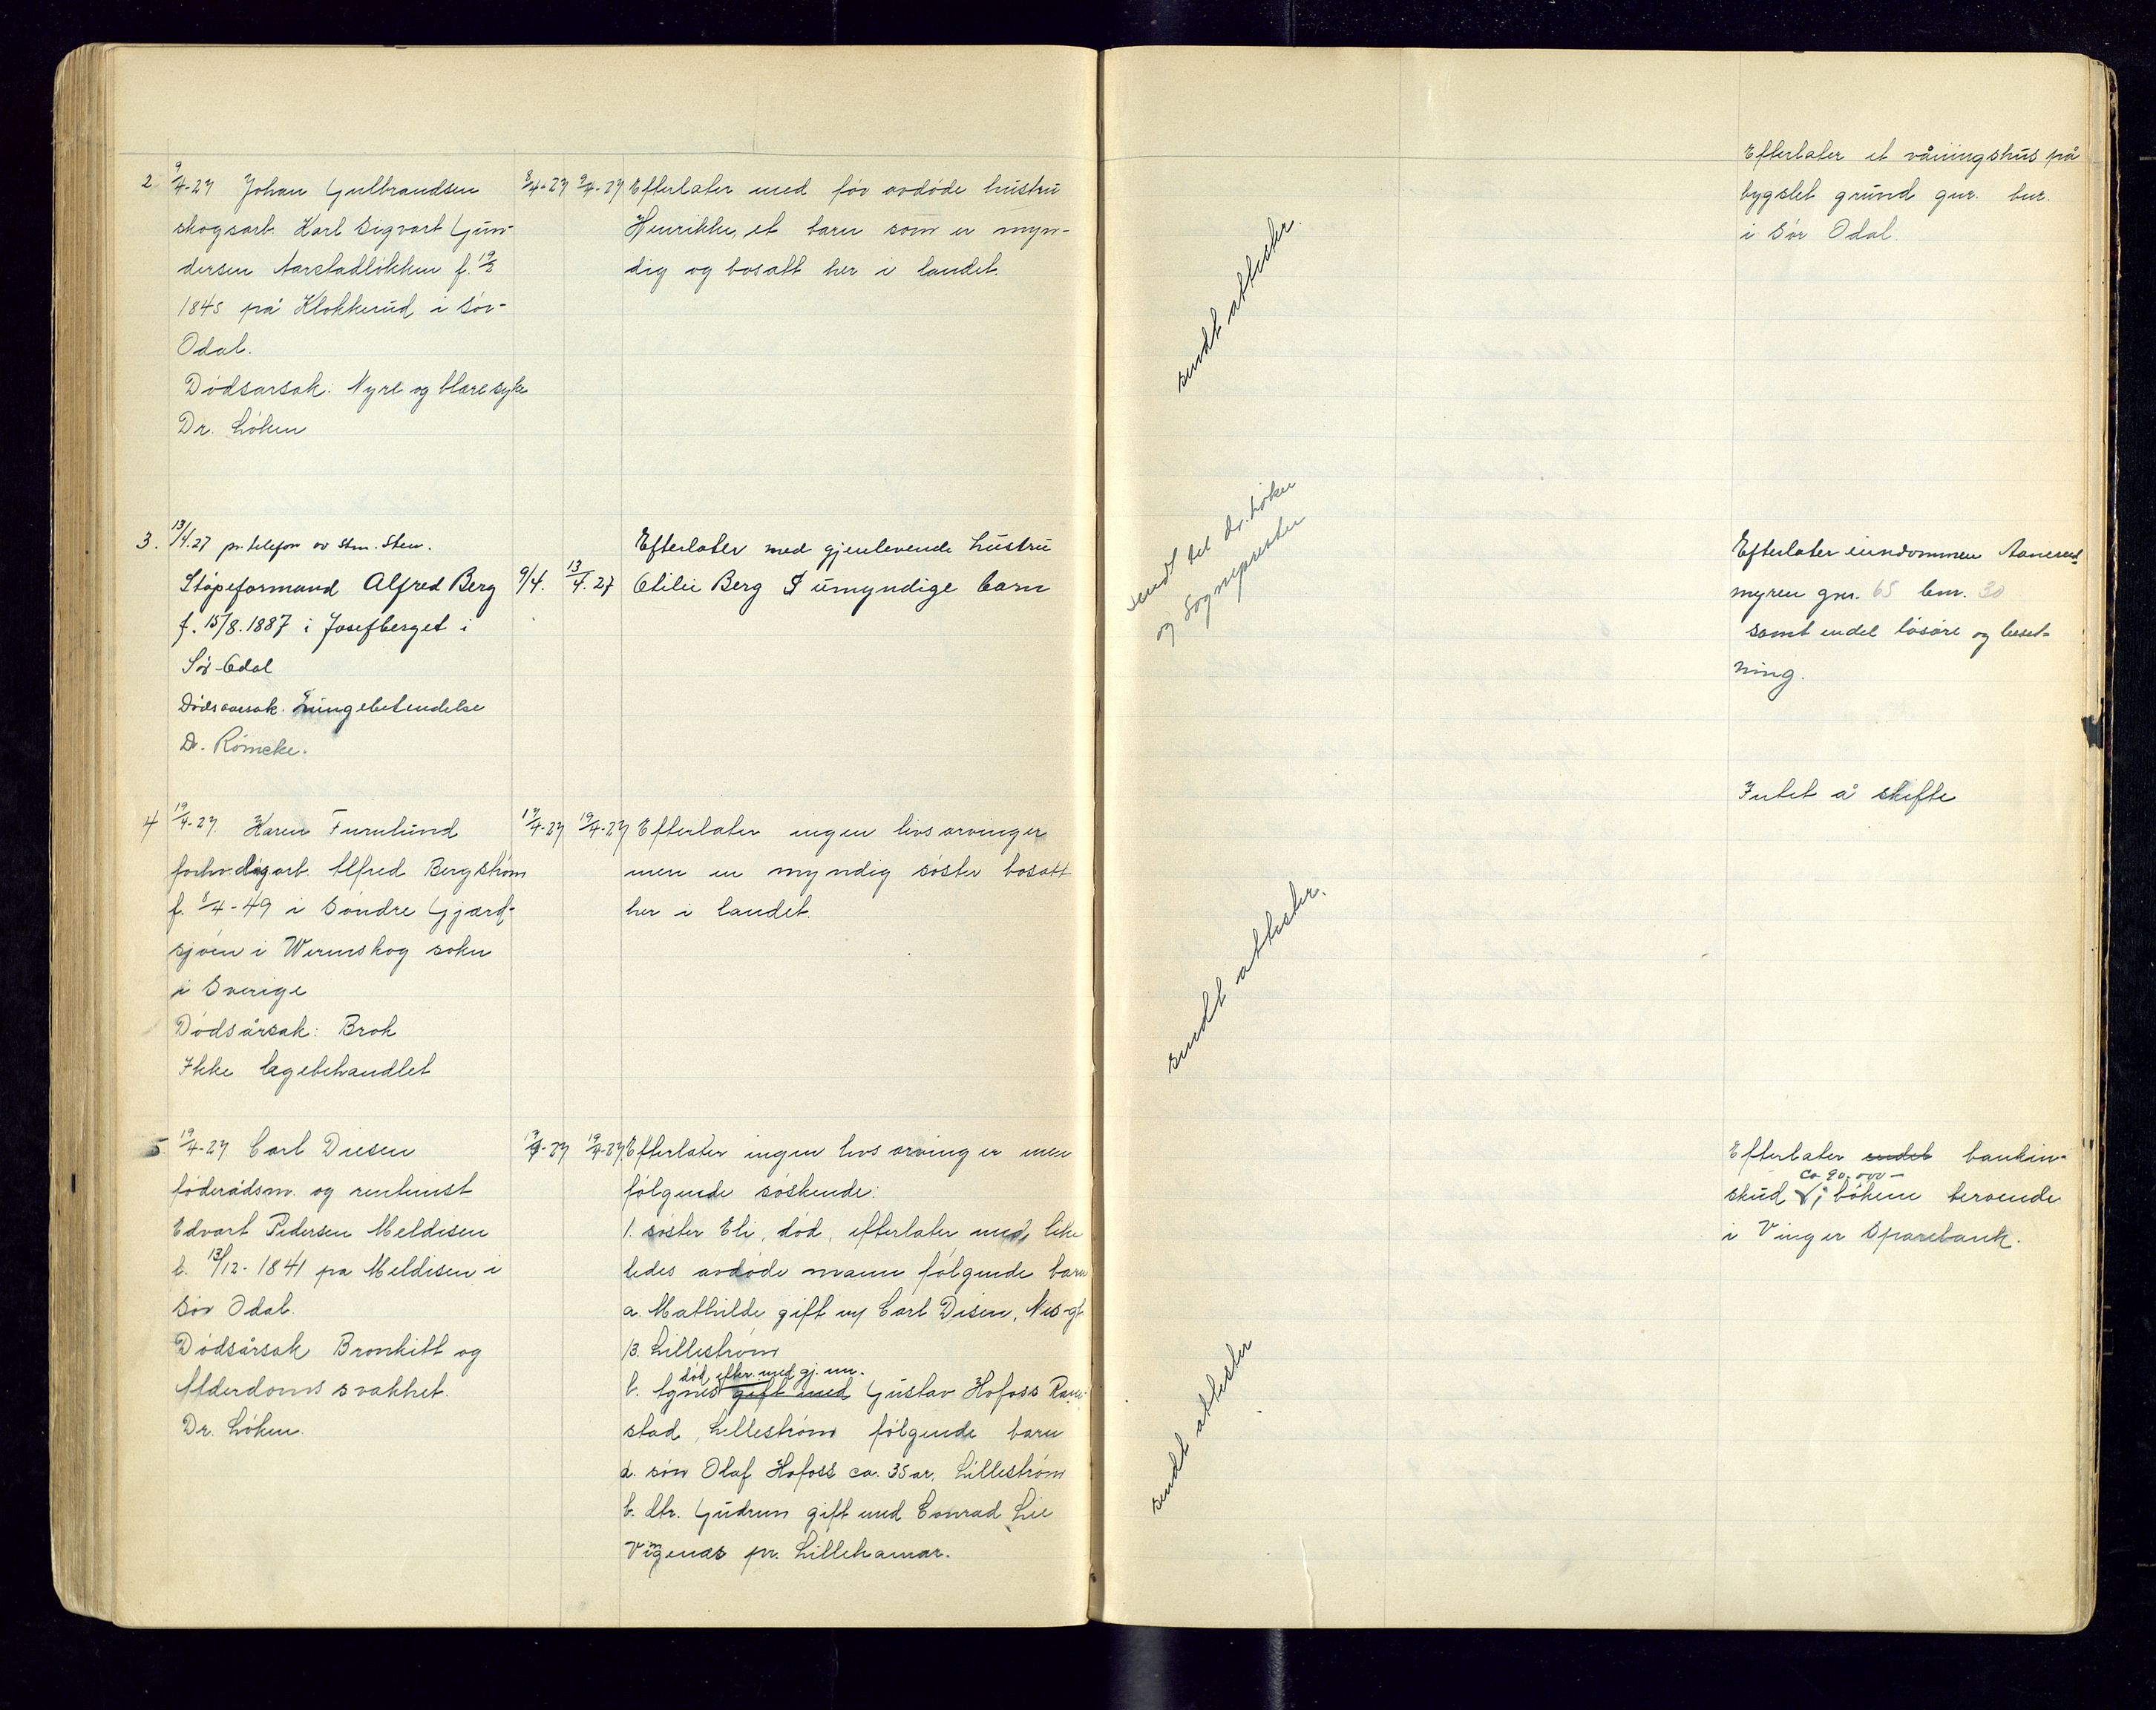 2. 9/4-27 Johan Gulbrandsen
skogsarb. Karl Sigvart Gun-
dersen Aarstadløkken f. 19/2
1845 på Klokkerud i Sør-
Odal.
Dødsarsak: Nyre og blæresyke
Dr. Løken
8/4-27 9/4-27 Efterlater med før avdøde hustru
Henrikke, et barn som er myn-
dig og bosatt her i landet.
sendt attester.
Efterlater et våningshus på
bygslet grund gnr. bnr.
i Sør Odal.
3. 13/4.27 pr. telefon av Stm. Sten.
Støpeformand Alfred Berg
f. 15/8.1887 i Josefberget i
Sør-Odal
Dødsaarsak. Lungebetendelse
Dr. Römcke.
9/4. 13/4.27
Efterlater med gjenlevende hustru
Otilie Berg 8 umyndige barn
sendt til Dr. Løken
og Sognepresten
Efterlater eiendommen Aanerud
myren gnr. 65 bnr. 30
samt endel løsøre og beset-
ning.
4 19/4-27. Karen Furulund
forhv. dagarb. Alfred Bergstrøm
f. 8/4-49 i Søndre Gjærd-
sjøen i Wermskog sokn
i Sverige
Dødsårsak: Brok
Ikke lægebehandlet
17/4-27 19/4-27 Efterlater ingen livsarvinger
men en myndig søster bosatt
her i landet.
sendt attester.
Intet å skifte
5 19/4-27 Carl Diesen
føderådsm. og rentenist
Edvart Pedersen Meldisen
f. 13/12-1841 på Meldisen i
Sør Odal.
Dødsårsak Bronkitt og
Alderdomssvakhet.
Dr. Løken.
17/4-27 19/4-27 Efterlater ingen livsarvinger men
følgende søskende:
1. søster Eli, død, efterlater med like
ledes avdøde mann følgende barn
a. Mathilde gift m/ Carl Disen, Nes-gt
13. Lillestrøm
død, efter. med gj. m.
b. Agnes gift med Gustav Hofoss
stad, Lillestrøm følgende barn
a. søn Olaf Hofoss ca. 35 ar, Lillestrøm
b. dtr. Gudrun gift med Conrad Lie
pr. Lillehamar.
sendt attester
Efterlater endel bankin-
ca 90.000 -
skud i bøkene beroende
i Vinger Sparebank.